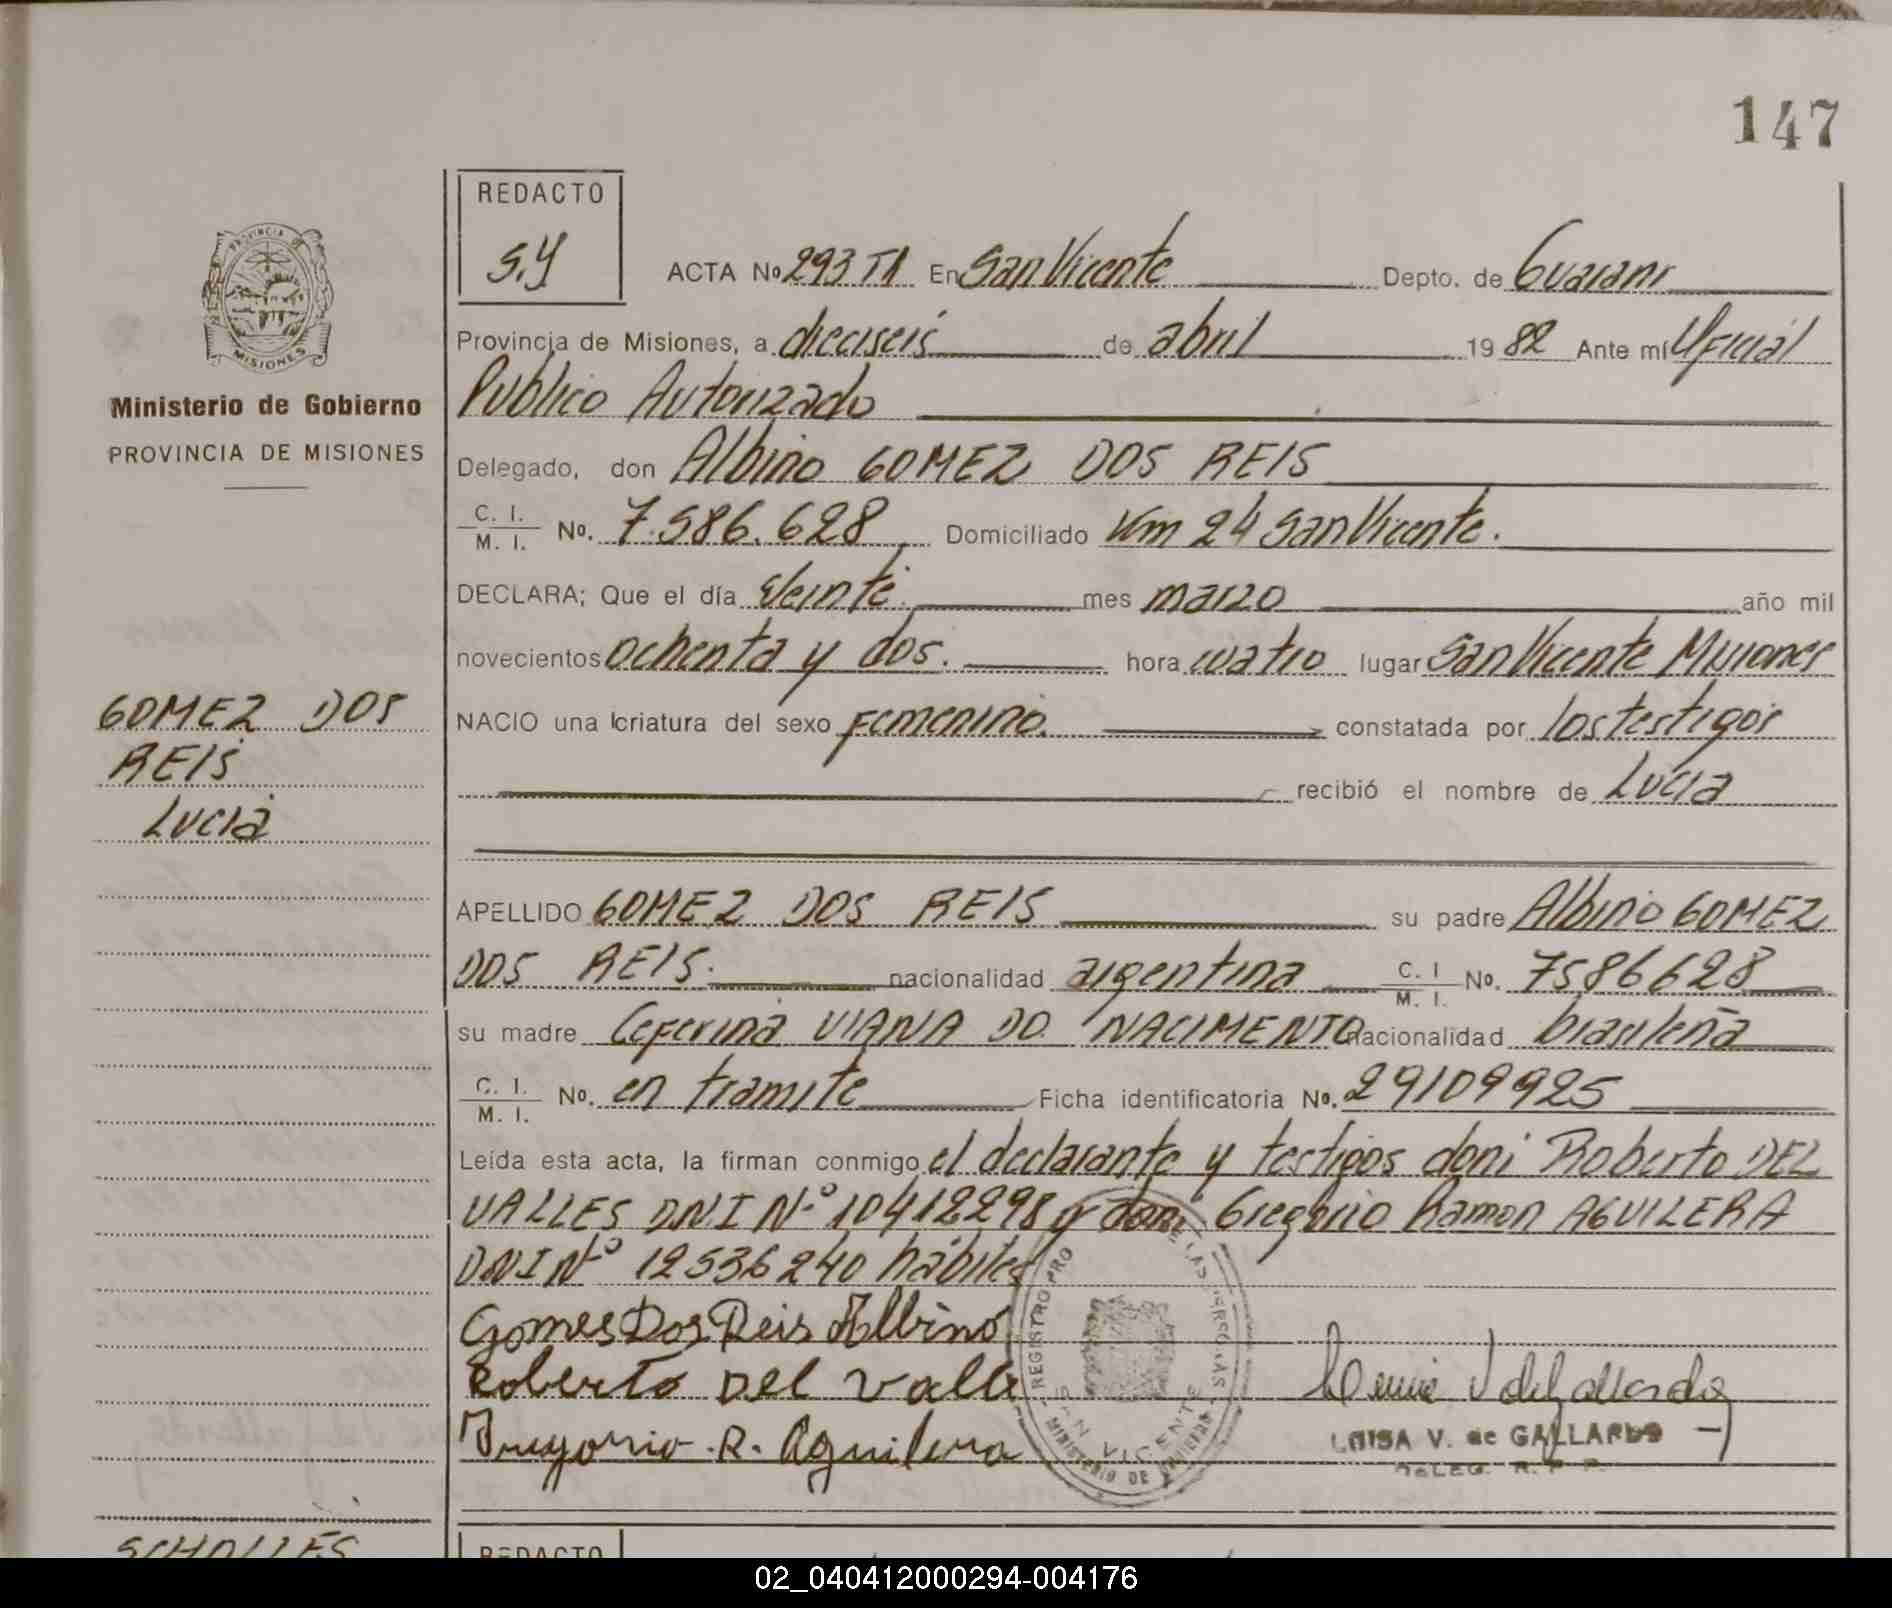 147
REDACTO
S.Y
ACTA No 293 TI En San Vicente Depto. de Guarani
Provincia de Misiones, a dieciseis de abril 1982 Ante mí Oficial
Publico Autorizado
Delegado, don Albino GOMEZ DOS REIS
C. I. / M. I. No. 7.586.628 Domiciliado Km 24 San Vicente.
DECLARA; Que el día Veinte mes marzo año mil
novecientos ochenta y dos. hora cuatro lugar San Vicente Misiones
NACIO una criatura del sexo Femenino. constatada por los testigos
recibió el nombre de Lucia
APELLIDO GOMEZ DOS REIS su padre Albino GOMEZ
DOS REIS. nacionalidad argentina C. I / M. I. No. 7586628
su madre Ceferina VIANA DO NACIMENTO nacionalidad brasileña
C. I. / M. I. No. en tramite Ficha identificatoria No. 29109925
Leída esta acta, la firman conmigo el declarante y testigos don: Roberto DEL
VALLES DNI Nº 10412298 y don: Gregorio Ramon AGUILERA
DNI Nº 12536240 hábiles
Gomes Dos Reis Albino
Roberto Del Valle
Gregorio R. Aguilera
LUISA V. de GALLARDO
DELEG. R. P. P.
REGISTRO PRO DE LAS PERSONAS
SAN VICENTE
MINISTERIO DE GOBIERNO
PROVINCIA DE
MISIONES
Ministerio de Gobierno
PROVINCIA DE MISIONES
GOMEZ DOS
REIS
Lucia
SCHOLLES
REDACTO
02_040412000294-004176